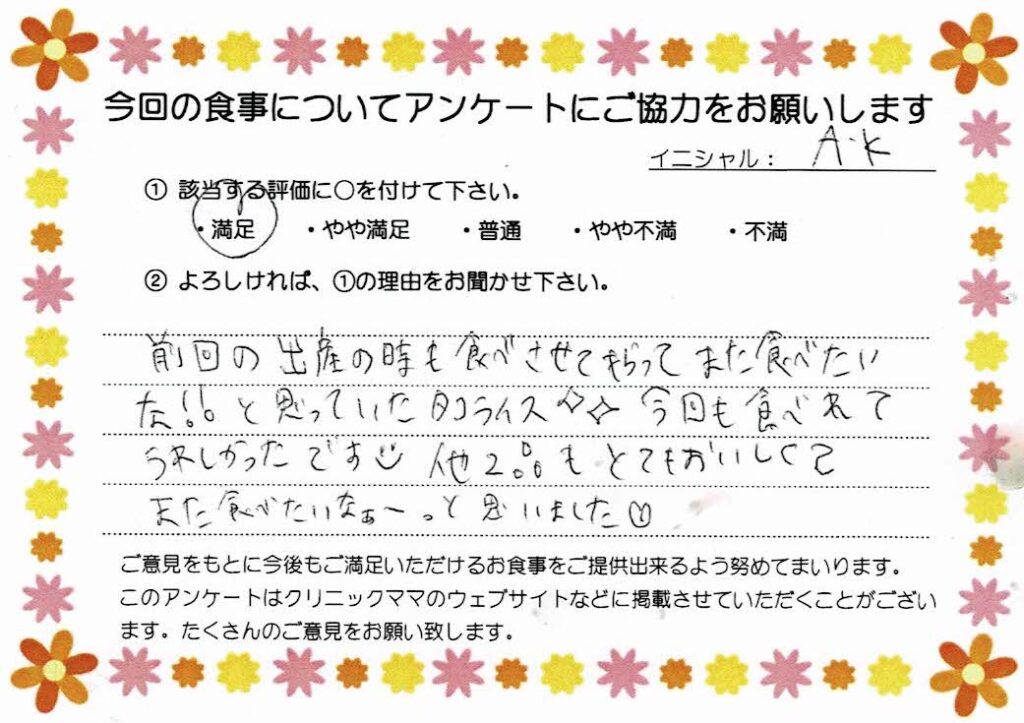 今回の食事についてアンケートにご協力をお願いします
イニシャル： A・K
① 該当する評価に○を付けて下さい。
・満足 ・やや満足 ・普通 ・やや不満 ・不満
② よろしければ、①の理由をお聞かせ下さい。
前回の出産の時も食べさせてもらってまた食べたい
な!!。と思っていたタコライス✧✧今回も食べれて
うれしかったです☺ 他2品もとてもおいしくて
また食べたいなぁ〜っと思いました♡
ご意見をもとに今後もご満足いただけるお食事をご提供出来るよう努めてまいります。
このアンケートはクリニックママのウェブサイトなどに掲載させていただくことがござい
ます。たくさんのご意見をお願い致します。